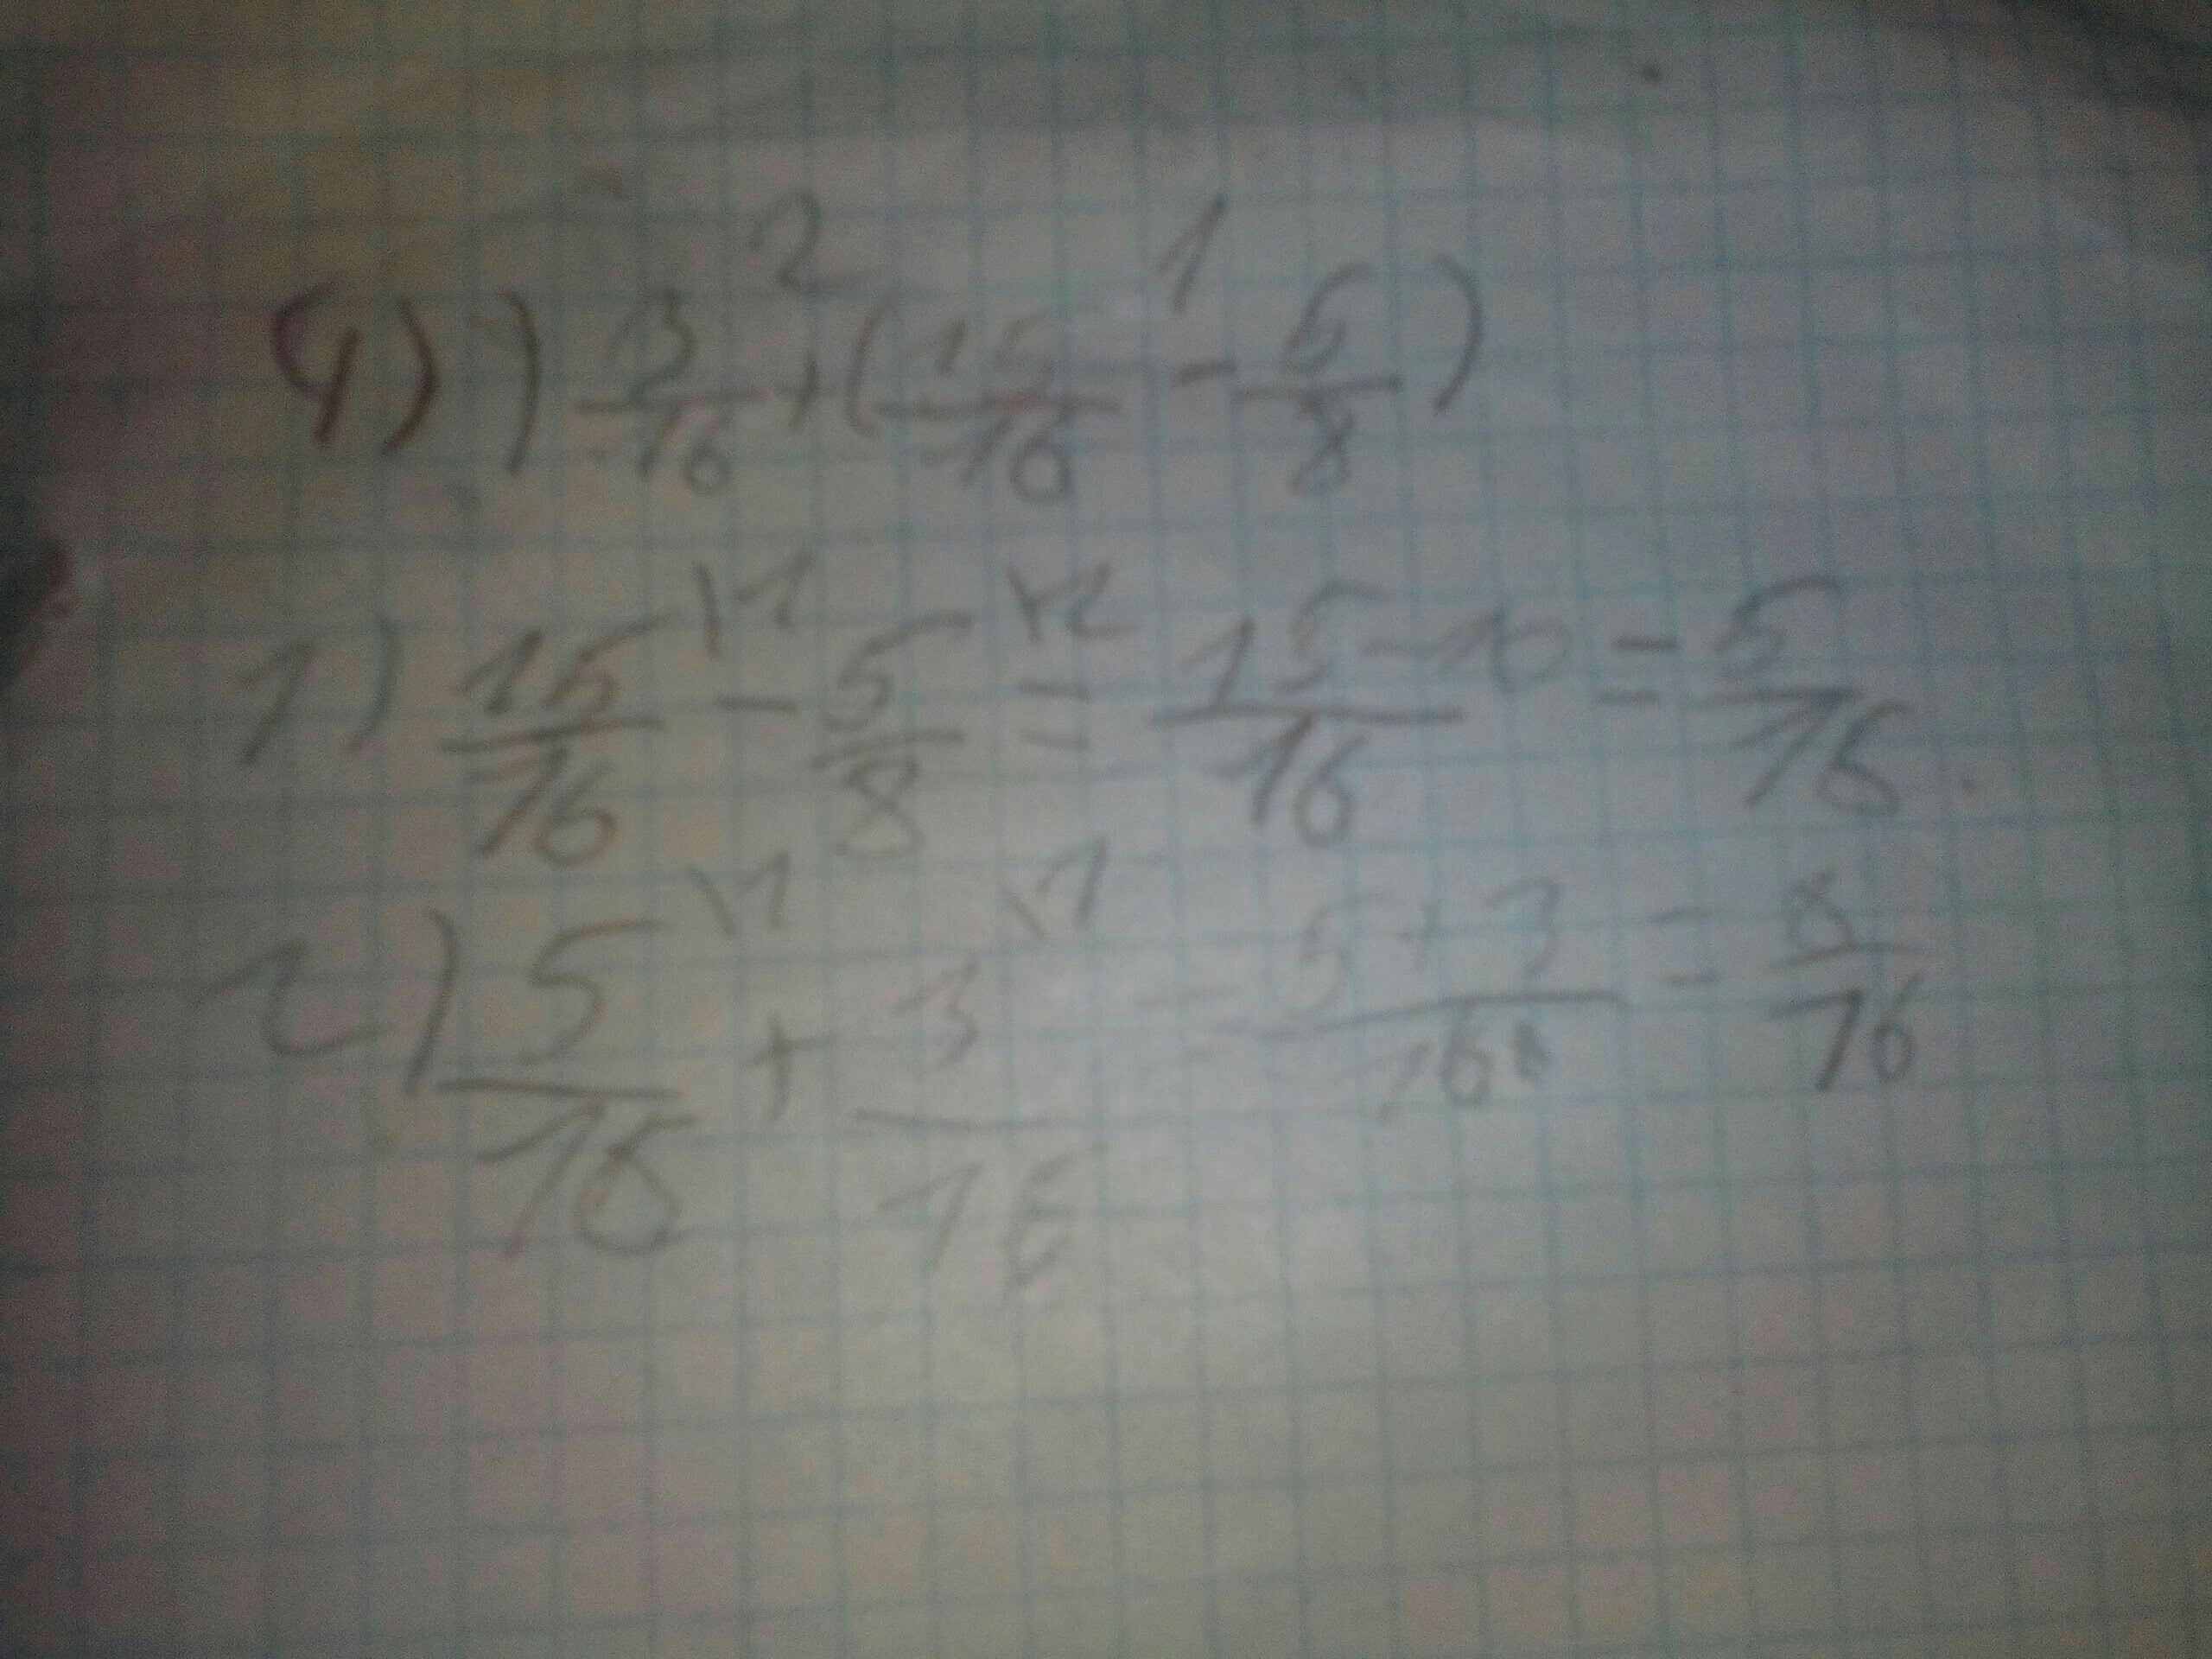 2 1
4) ) 3/16 + (15/16 - 5/8)
1) 15/16 \1 - 5/8 \2 = 15-10/16 = 5/16
2) 5/16 \1 + 3/16 \1 = 5+3/16 = 8/16